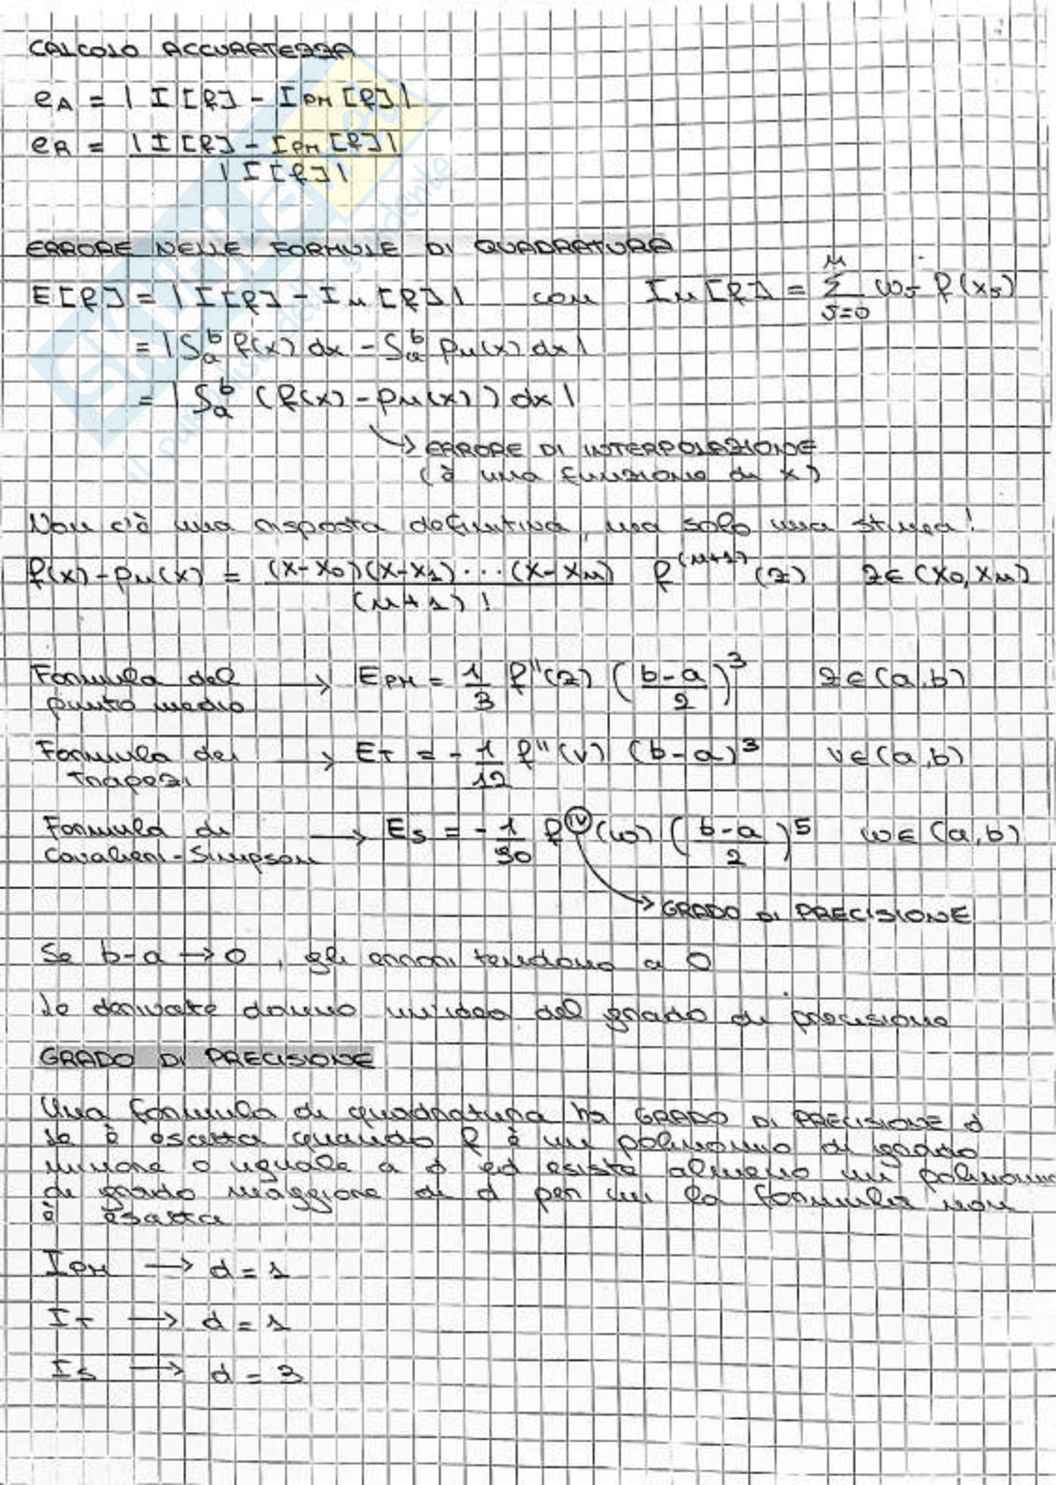 CALCOLO ACCURATEZZA
eA = | I[f] - IPM[f] |
eR = | I[f] - IPM[f] |
| I[f] |
ERRORE NELLE FORMULE DI QUADRATURA
E[f] = | I[f] - In[f] | con In[f] = Σ_{j=0}^{n} ωj f(xj)
= | ∫_a^b f(x) dx - ∫_a^b pn(x) dx |
= | ∫_a^b (f(x) - pn(x)) dx |
→ ERRORE DI INTERPOLAZIONE
(è una funzione di x)
Non c'è una risposta definitiva, ma solo una stima!
f(x) - pn(x) = (x-x0)(x-x1)···(x-xn) f^(n+1)(z) z∈(x0,xn)
(n+1)!
Formula del → EPM = 1/3 f''(z) (b-a/2)^3 z∈(a,b)
punto medio
Formula dei → ET = - 1/12 f''(v) (b-a)^3 v∈(a,b)
Trapezi
Formula di → ES = - 1/90 f^IV(w) (b-a/2)^5 w∈(a,b)
Cavalieri-Simpson
→ GRADO DI PRECISIONE
Se b-a → 0, gli errori tendono a 0
le derivate danno un'idea del grado di precisione
GRADO DI PRECISIONE
Una formula di quadratura ha GRADO DI PRECISIONE d
se è esatta quando f è un polinomio di grado
minore o uguale a d ed esiste almeno un polinomio
di grado maggiore di d per cui la formula non
è esatta
IPM → d = 1
IT → d = 1
IS → d = 3